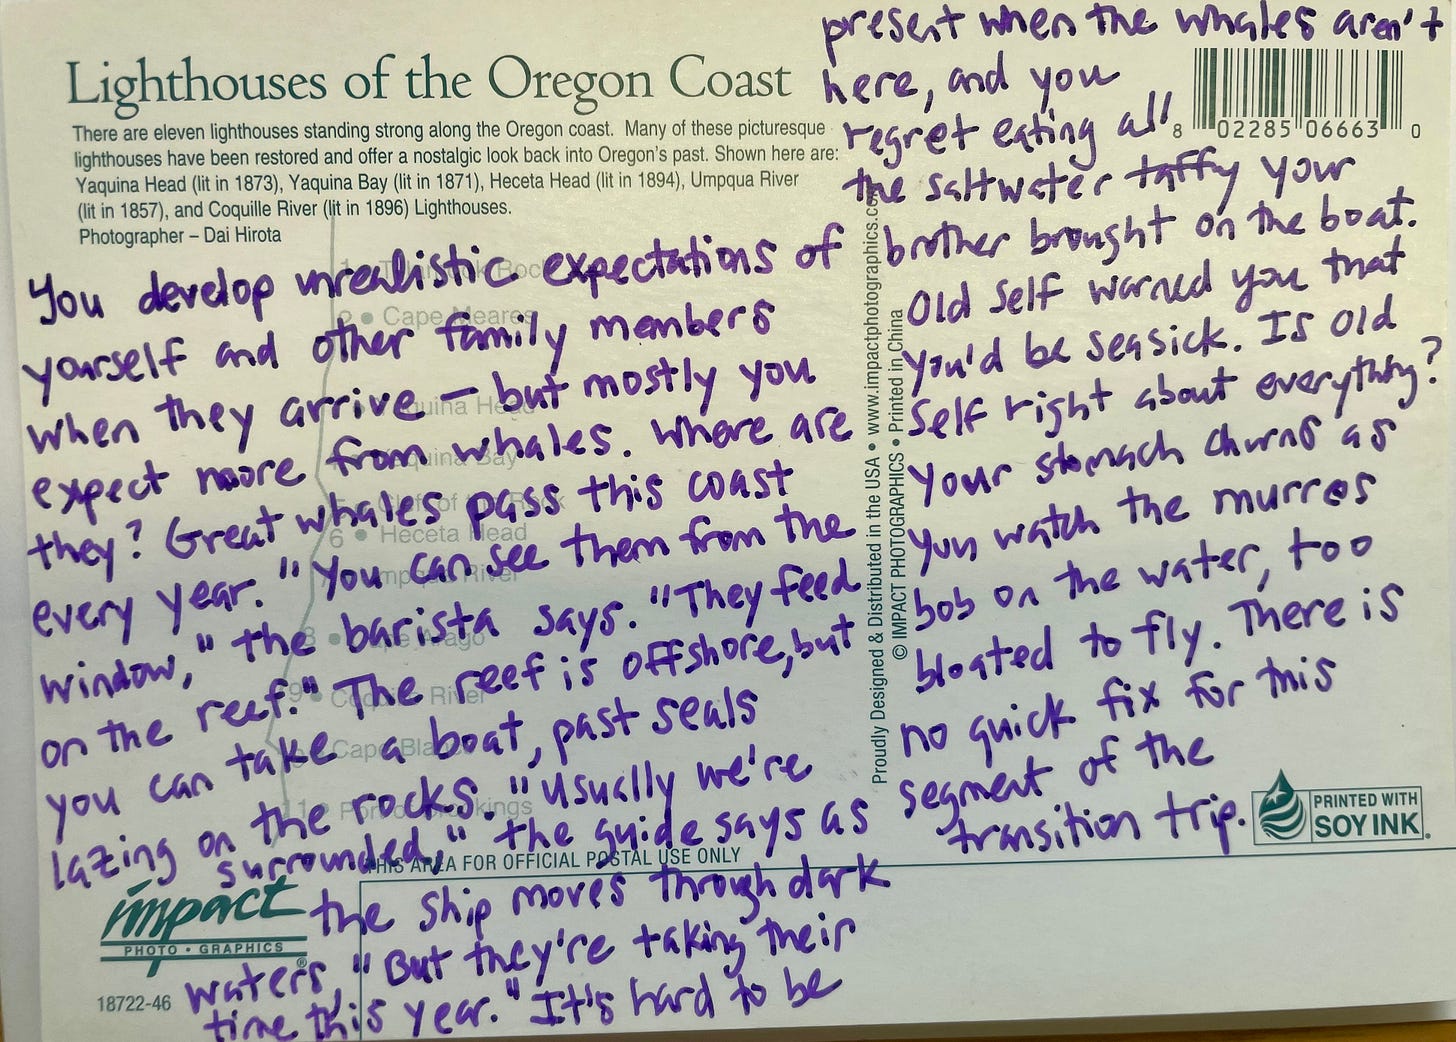 Lighthouses of the Oregon Coast
There are eleven lighthouses standing strong along the Oregon coast. Many of these picturesque
lighthouses have been restored and offer a nostalgic look back into Oregon's past. Shown here are:
Yaquina Head (lit in 1873), Yaquina Bay (lit in 1871), Heceta Head (lit in 1894), Umpqua River
(lit in 1857), and Coquille River (lit in 1896) Lighthouses.
Photographer – Dai Hirota
You develop unrealistic expectations of
yourself and other family members
when they arrive — but mostly you
expect more from whales. Where are
they? Great whales pass this coast
every year. "You can see them from the
window," the barista says. "They feed
on the reef." The reef is offshore, but
you can take a boat, past seals
lazing on the rocks. "Usually we're
surrounded," the guide says as
the ship moves through dark
waters, "But they're taking their
time this year." It's hard to be
present when the whales aren't
here, and you
regret eating all
the saltwater taffy your
brother brought on the boat.
Old Self warned you that
you'd be seasick. Is Old
Self right about everything?
Your stomach churns as
you watch the murres
bob on the water, too
bloated to fly. There is
no quick fix for this
segment of the
transition trip.
8 02285 06663 0
Proudly Designed & Distributed in the USA • www.impactphotographics.co
© IMPACT PHOTOGRAPHICS • Printed in China
Cape Meares
Heceta Head
6
Coquille River
9
Cape Blan
11
THIS AREA FOR OFFICIAL POSTAL USE ONLY
impact
PHOTO • GRAPHICS ®
18722-46
PRINTED WITH
SOY INK